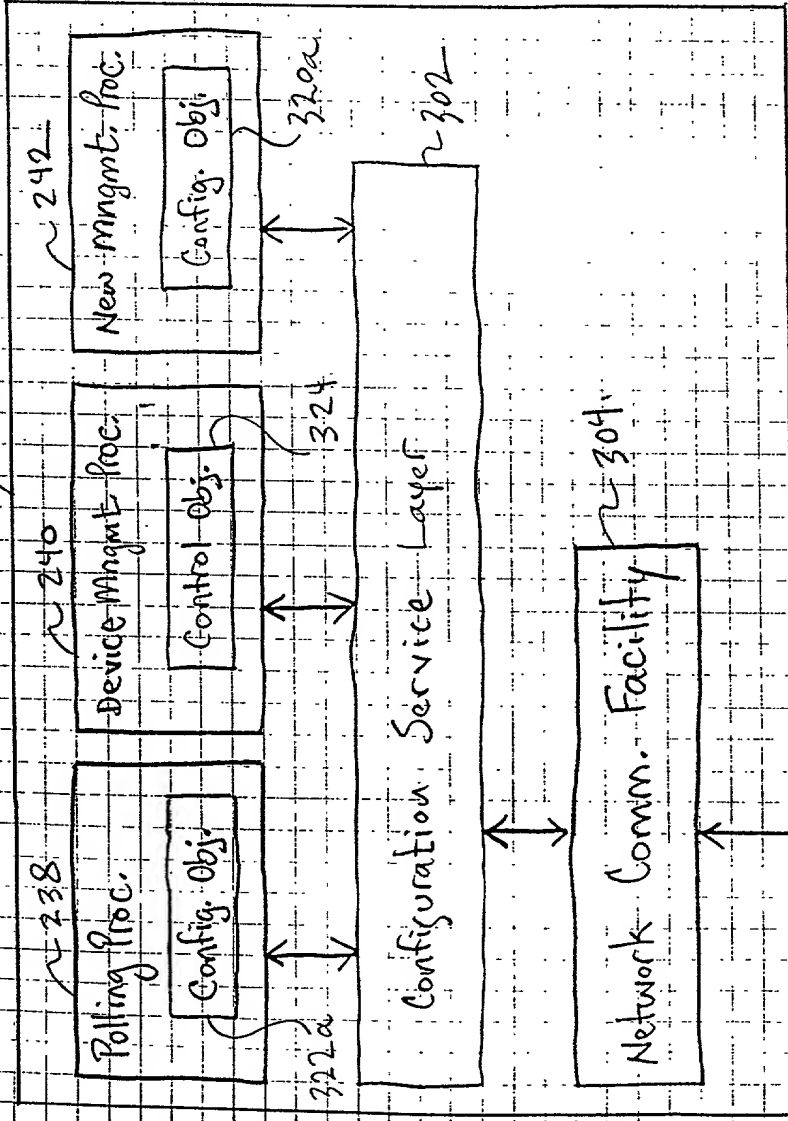 238
Polling Proc.
Config. Obj.
322a
240
Device Mngmt. Proc.
Control Obj.
324
242
New Mngmt. Proc.
Config. Obj.
320a
Configuration Service Layer
302
Network Comm. Facility
304